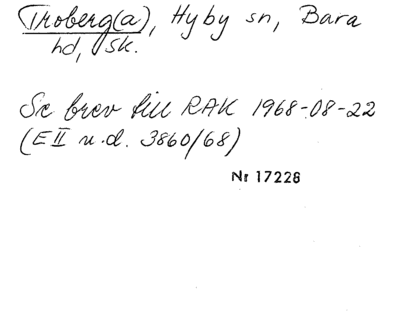 Troberg(a), Hyby sn, Bara
hd, Sk.
Se brev till RAK 1968-08-22
(E II u.d. 3860/68)
Nr 17228